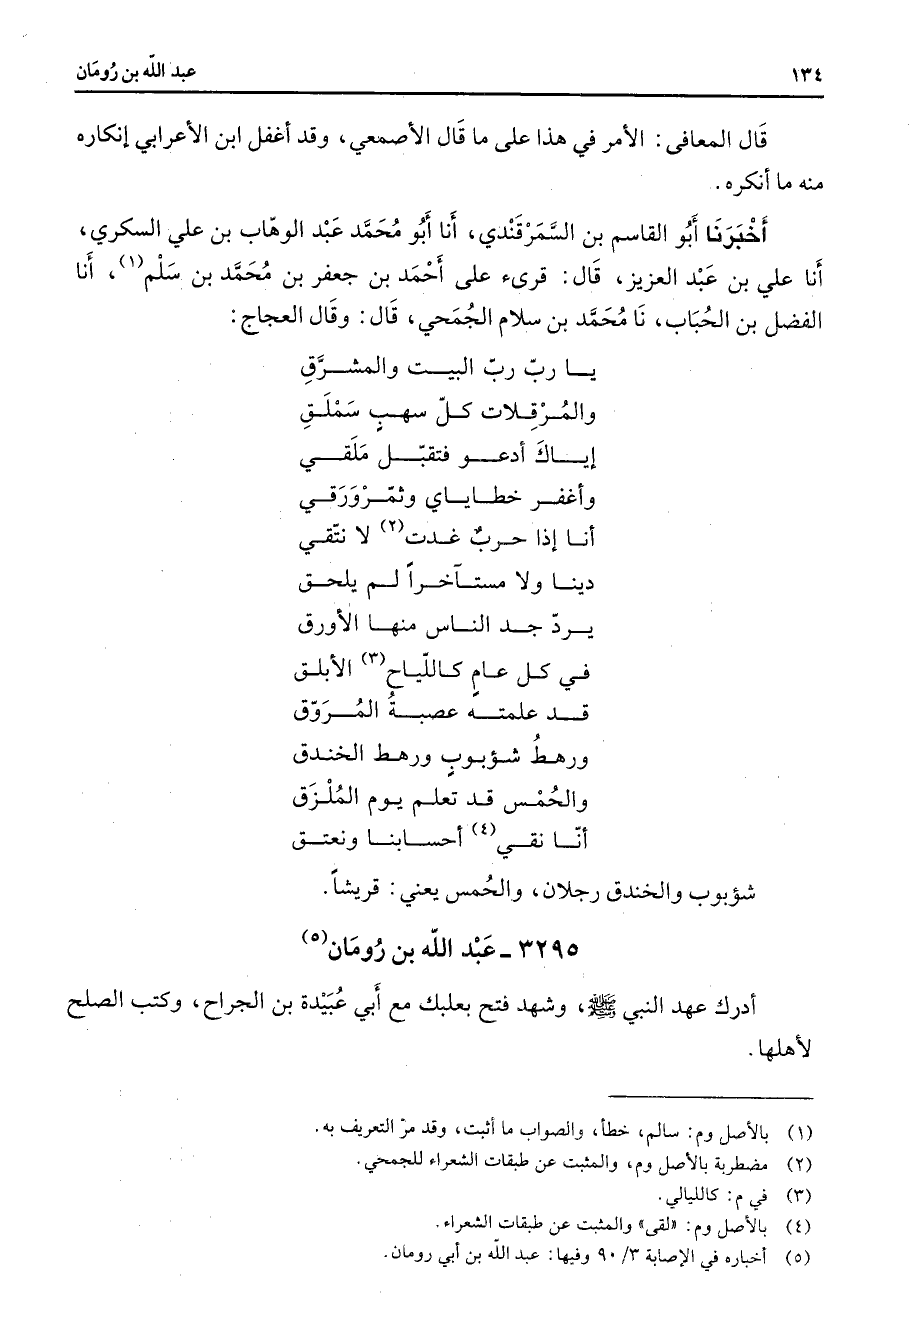 ١٣٤ عبد اللّه بن رُومَان
قَال المعافى: الأمر في هذا على ما قَال الأصمعي، وقد أغفل ابن الأعرابي إنكاره
منه ما أنكره.
أَخْبَرَنَا أَبُو القاسم بن السَّمَرْقَندي، أَنا أَبُو مُحَمَّد عَبْد الوهّاب بن علي السكري،
أَنا علي بن عَبْد العزيز، قَال: قرىء على أَحْمَد بن جعفر بن مُحَمَّد بن سَلْم(١)، أَنا
الفضل بن الحُبَاب، نَا مُحَمَّد بن سلام الجُمَحي، قَال: وقَال العجاج:
يـا ربّ ربّ البيـت والمشـرَّقِ
والمُـرْقِـلات كـلّ سهـبٍ سَمْلَـقِ
إيـاكَ أدعـو فتقبّـل مَلَقـي
وأغفـر خطـايـاي وثمّـرْ وَرَقـي
أنـا إذا حـربٌ غـدت(٢) لا نتّقـي
دينـا ولا مستـآخـراً لـم يلحـق
يـردّ جـد النـاس منهـا الأورق
فـي كـل عـامٍ كـاللّياح(٣) الأبلـق
قـد علمتـه عصبـةُ المُـرَوّق
ورهـطُ شـؤبـوبٍ ورهـط الخنـدق
والحُمْـس قـد تعلـم يـوم المُلْـزَق
أنّـا نقـي(٤) أحسـابنـا ونعتـق
شؤبوب والخندق رجلان، والحُمس يعني: قريشاً.
٣٢٩٥ ـ عَبْد اللّه بن رُومَان(٥)
أدرك عهد النبي ﷺ، وشهد فتح بعلبك مع أَبي عُبَيْدة بن الجراح، وكتب الصلح
لأهلها.
(١) بالأصل وم: سالم، خطأ، والصواب ما أثبت، وقد مرّ التعريف به.
(٢) مضطربة بالأصل وم، والمثبت عن طبقات الشعراء للجمحي.
(٣) في م: كالليالي.
(٤) بالأصل وم: «لقى» والمثبت عن طبقات الشعراء.
(٥) أخباره في الإصابة ٣/ ٩٠ وفيها: عبد اللّه بن أبي رومان.